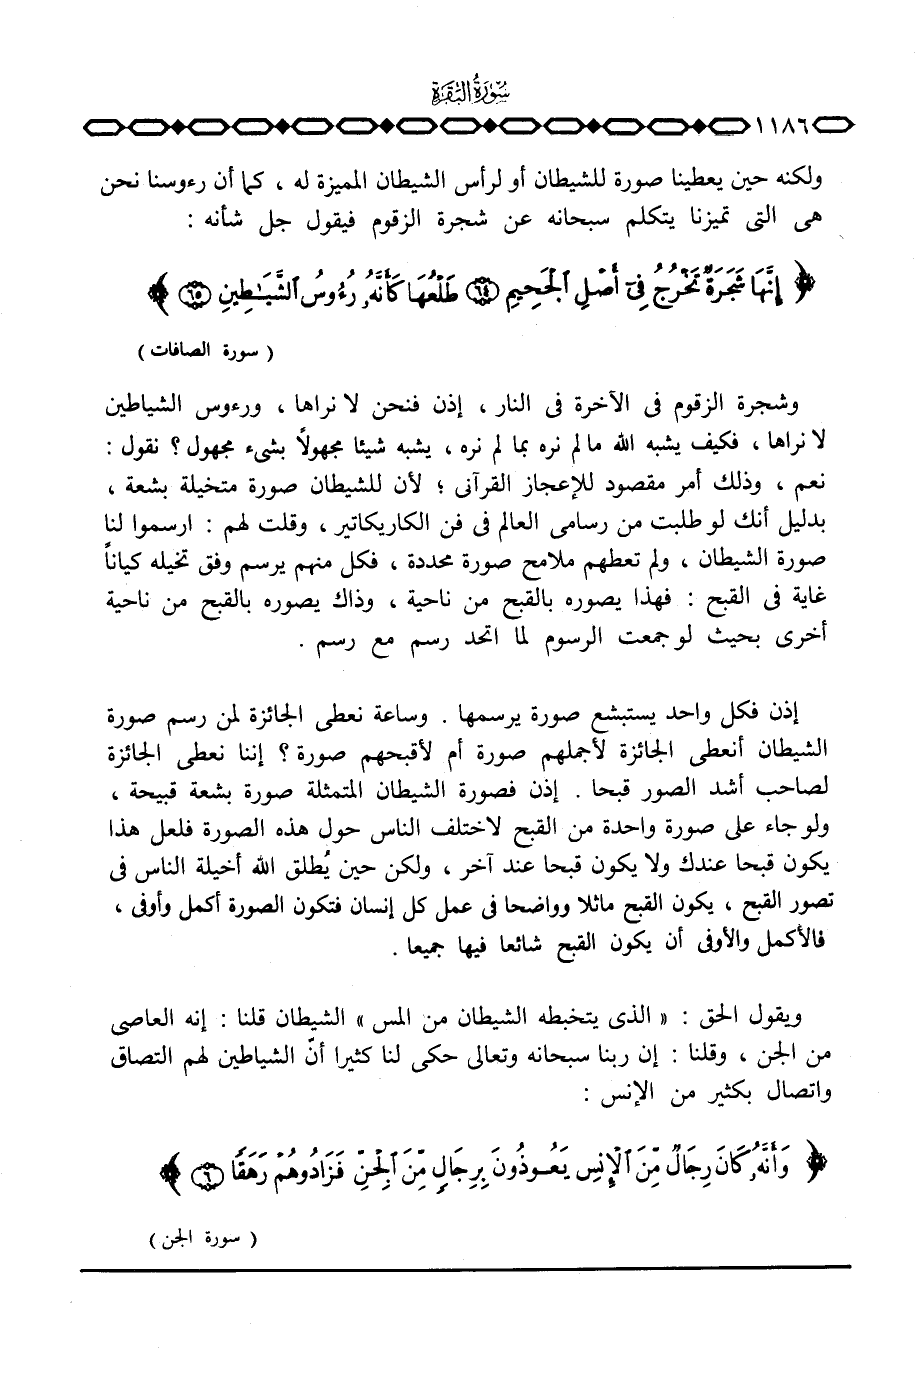 سورة البقرة
١١٨٦
ولكنه حين يعطينا صورة للشيطان أو لرأس الشيطان المميزة له ، كما أن رءوسنا نحن
هى التى تميزنا يتكلم سبحانه عن شجرة الزقوم فيقول جل شأنه :
﴿ إِنَّهَا شَجَرَةٌ تَخْرُجُ فِىٓ أَصْلِ ٱلْجَحِيمِ ٦٤ طَلْعُهَا كَأَنَّهُۥ رُءُوسُ ٱلشَّيَـٰطِينِ ٦٥ ﴾
( سورة الصافات )
وشجرة الزقوم فى الآخرة فى النار ، إذن فنحن لا نراها ، ورءوس الشياطين
لا نراها ، فكيف يشبه الله ما لم نره بما لم نره ، يشبه شيئا مجهولاً بشىء مجهول ؟ نقول :
نعم ، وذلك أمر مقصود للإعجاز القرآنى ؛ لأن للشيطان صورة متخيلة بشعة ،
بدليل أنك لو طلبت من رسامى العالم فى فن الكاريكاتير ، وقلت لهم : ارسموا لنا
صورة الشيطان ، ولم تعطهم ملامح صورة محددة ، فكل منهم يرسم وفق تخيله كياناً
غاية فى القبح : فهذا يصوره بالقبح من ناحية ، وذاك يصوره بالقبح من ناحية
أخرى بحيث لو جمعت الرسوم لما اتحد رسم مع رسم .
إذن فكل واحد يستبشع صورة يرسمها . وساعة نعطى الجائزة لمن رسم صورة
الشيطان أنعطى الجائزة لأجملهم صورة أم لأقبحهم صورة ؟ إننا نعطى الجائزة
لصاحب أشد الصور قبحا . إذن فصورة الشيطان المتمثلة صورة بشعة قبيحة ،
ولو جاء على صورة واحدة من القبح لاختلف الناس حول هذه الصورة فلعل هذا
يكون قبحا عندك ولا يكون قبحا عند آخر ، ولكن حين يُطلق الله أخيلة الناس فى
تصور القبح ، يكون القبح ماثلا وواضحا فى عمل كل إنسان فتكون الصورة أكمل وأوفى ،
فالأكمل والأوفى أن يكون القبح شائعا فيها جميعا .
ويقول الحق : « الذى يتخبطه الشيطان من المس » الشيطان قلنا : إنه العاصى
من الجن ، وقلنا : إن ربنا سبحانه وتعالى حكى لنا كثيرا أنّ الشياطين لهم التصاق
واتصال بكثير من الإنس :
﴿ وَأَنَّهُۥ كَانَ رِجَالٌ مِّنَ ٱلْإِنسِ يَعُوذُونَ بِرِجَالٍ مِّنَ ٱلْجِنِّ فَزَادُوهُمْ رَهَقًا ٦ ﴾
( سورة الجن )